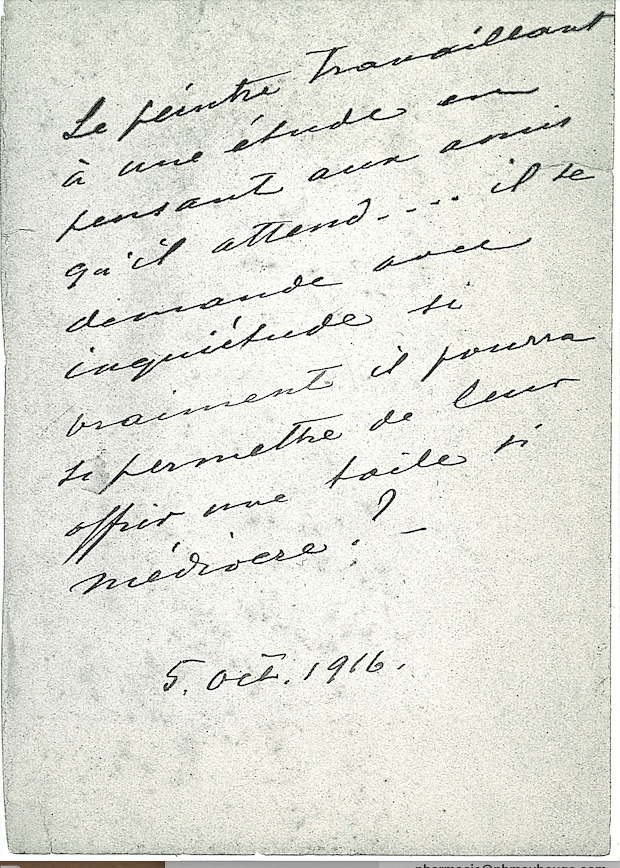 Le peintre travaillant
à une étude en
pensant aux amis
qu'il attend.... il se
demande avec
inquiétude si
vraiment il pourra
se permettre de leur
offrir une toile si
médiocre ? —
5. Oct. 1916.